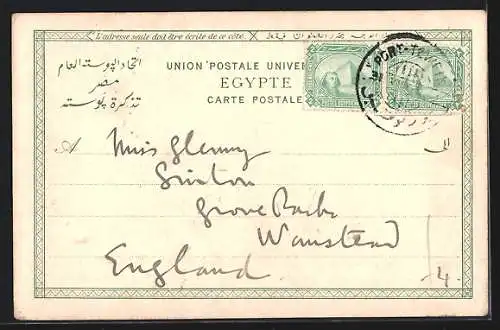 L'adresse seule doit être écrite de ce côté.
اتحاد البوستة العام
مصر
تذكرة بوستة
UNION POSTALE UNIVER
EGYPTE
CARTE POSTALE
PORT-TEWFIK
A
Miss Glenny
Grove Park
Wanstead
England
4